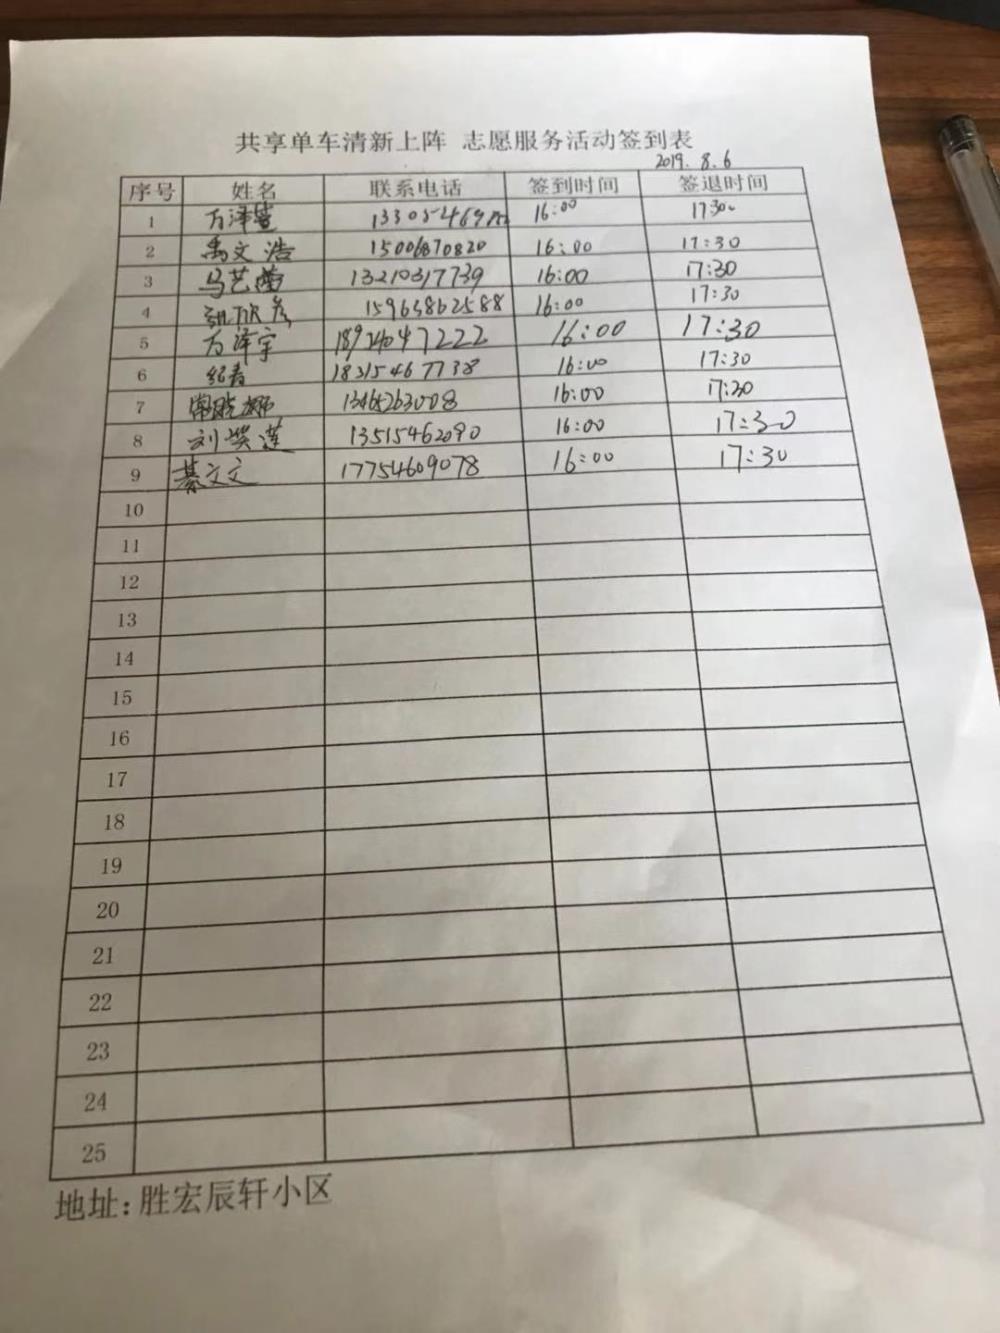 共享单车清新上阵 志愿服务活动签到表
2019.8.6
序号 姓名 联系电话 签到时间 签退时间
1 万泽萱 16:00 17:30
2 禹文浩 15006870820 16:00 17:30
3 马艺蕾 13210317739 16:00 17:30
4 15965862588 16:00 17:30
5 万泽宇 16:00 17:30
6 18315467738 16:00 17:30
7 常晓娜 13465263008 16:00 17:30
8 刘 莲 13515462090 16:00 17:30
9 綦文文 17754609078 16:00 17:30
10
11
12
13
14
15
16
17
18
19
20
21
22
23
24
25
地址:胜宏辰轩小区